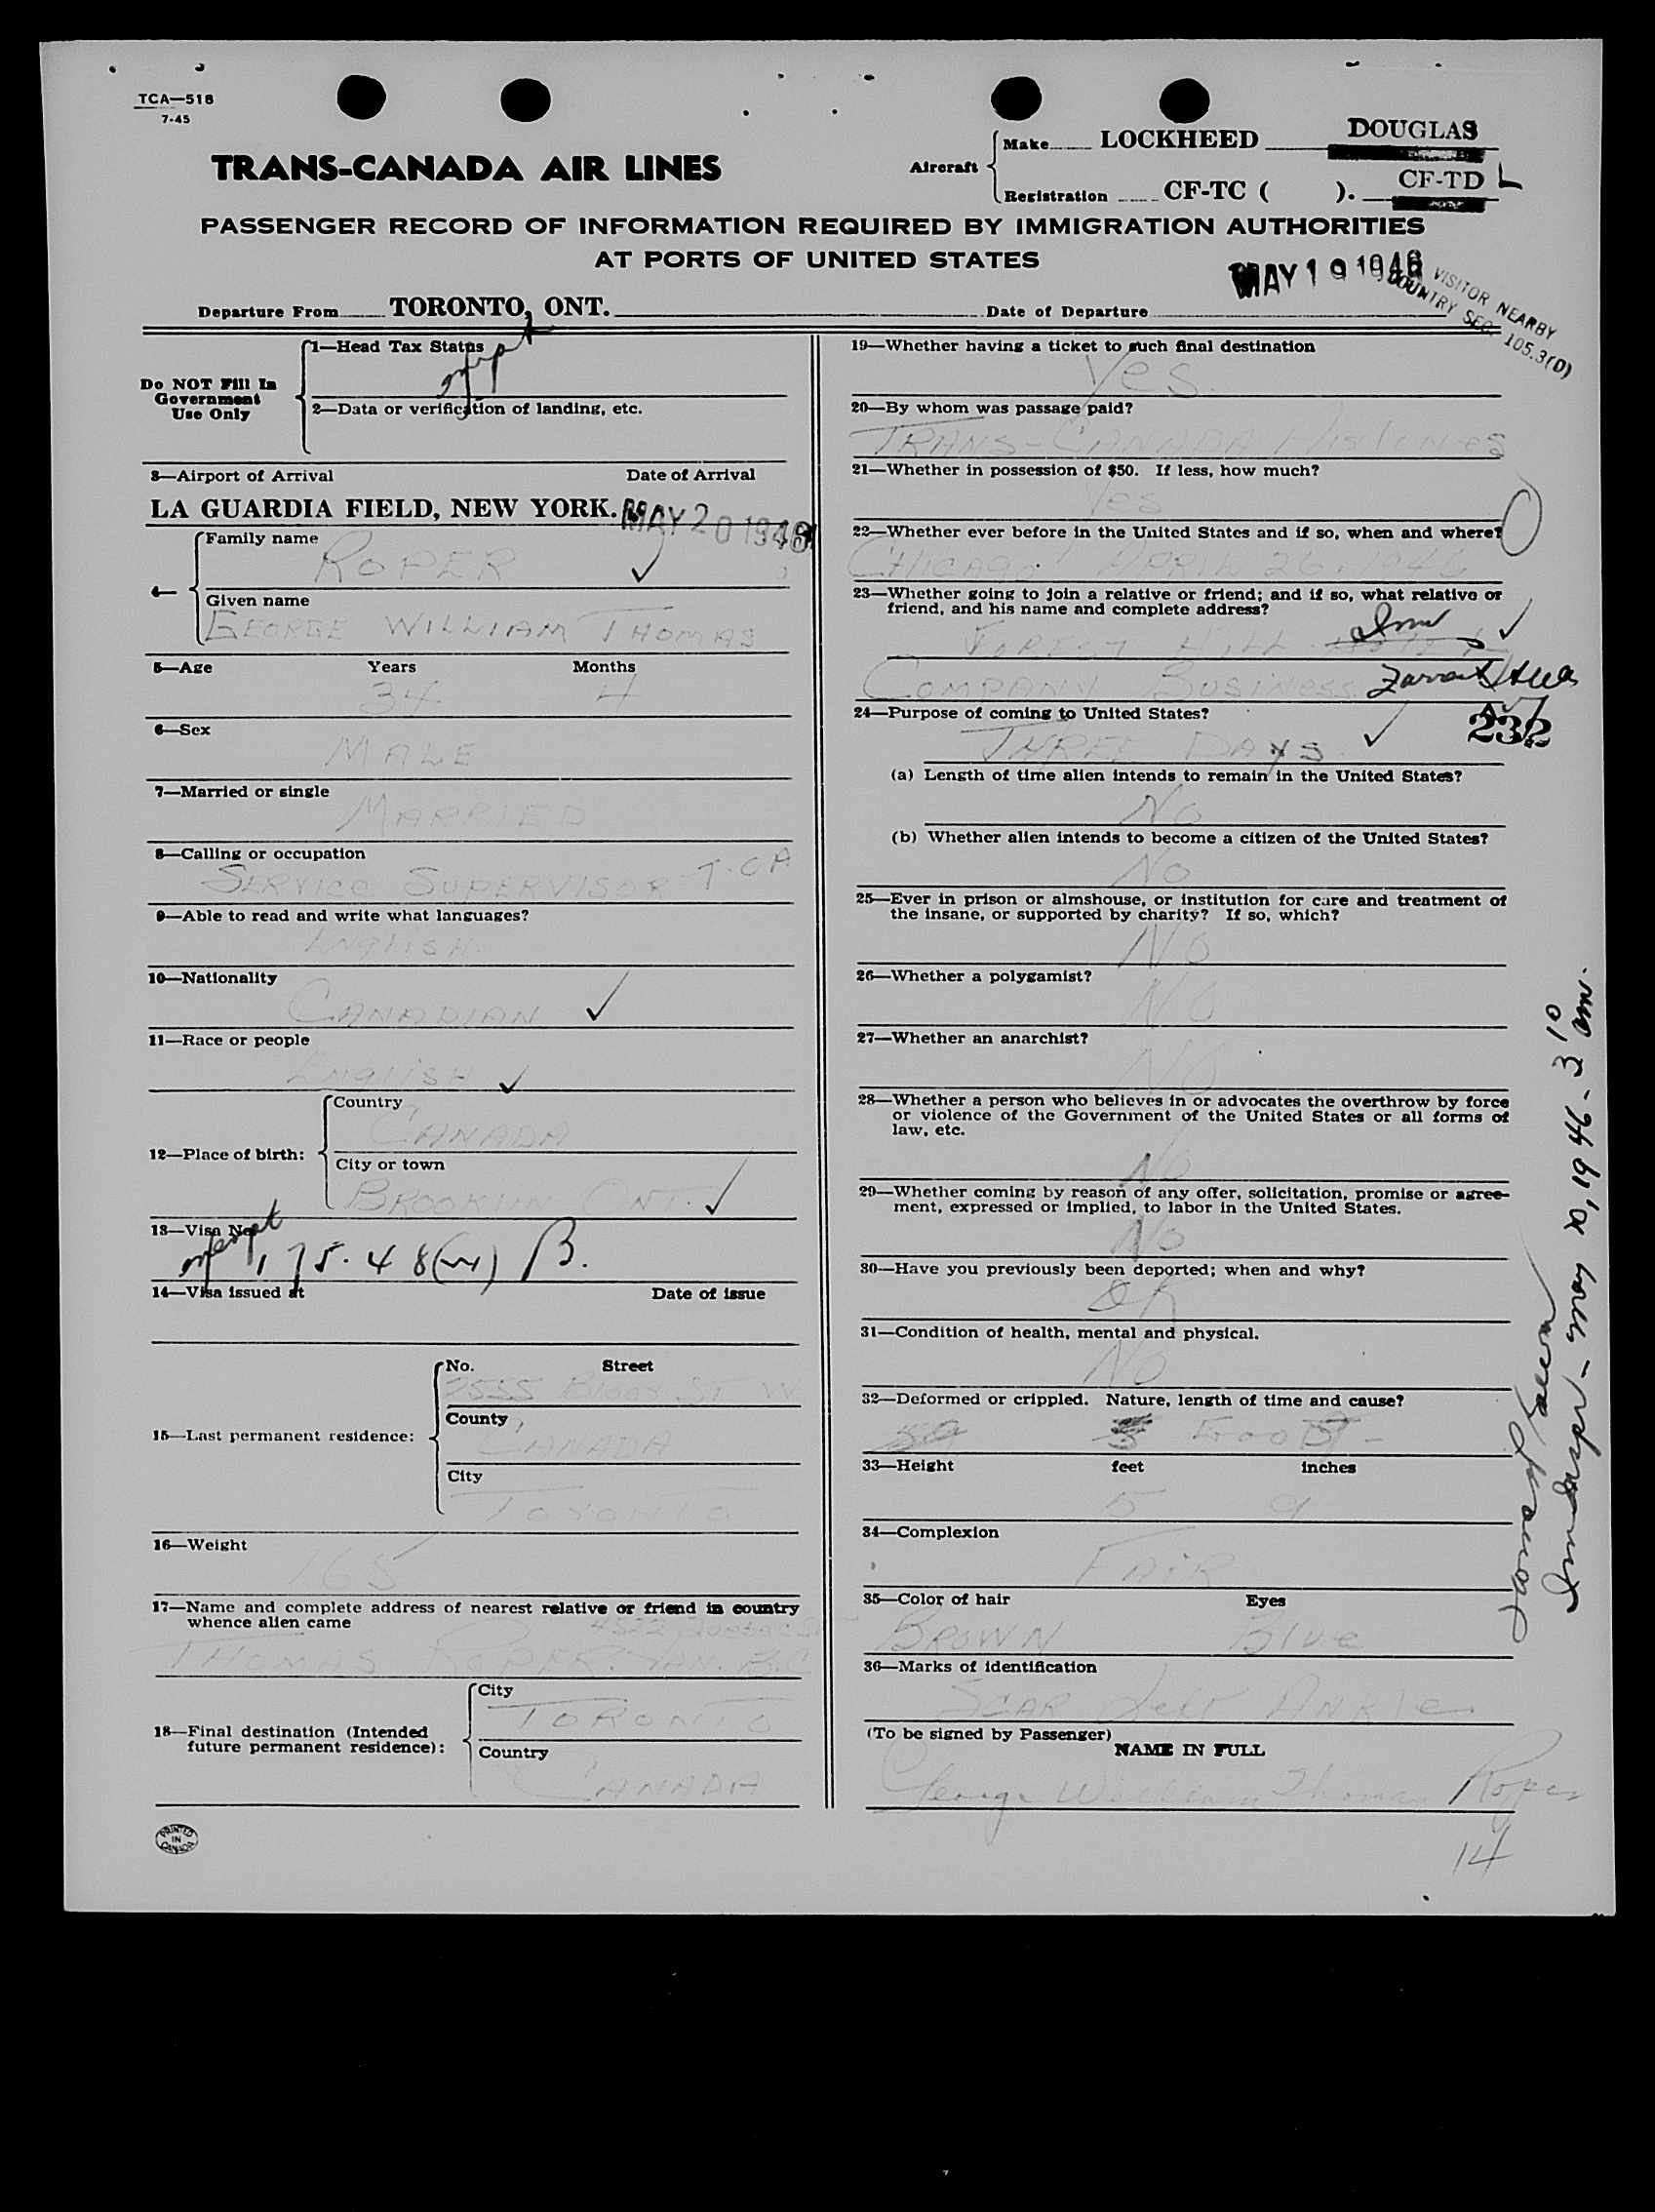 TCA—518
7-45
TRANS-CANADA AIR LINES
Aircraft
Make LOCKHEED DOUGLAS
Registration CF-TC ( ). CF-TD L
PASSENGER RECORD OF INFORMATION REQUIRED BY IMMIGRATION AUTHORITIES
AT PORTS OF UNITED STATES
MAY 19 1946
VISITOR NEARBY
COUNTRY SEC. 105.3(D)
Departure From TORONTO, ONT. Date of Departure
Do NOT Fill In
Government
Use Only
1—Head Tax Status
2—Data or verification of landing, etc.
3—Airport of Arrival Date of Arrival
LA GUARDIA FIELD, NEW YORK. MAY 20 1946
4—
Family name
ROPER
Given name
GEORGE WILLIAM THOMAS
5—Age Years Months
34 4
6—Sex
MALE
7—Married or single
MARRIED
8—Calling or occupation
SERVICE SUPERVISOR T.C.A
9—Able to read and write what languages?
ENGLISH
10—Nationality
CANADIAN
11—Race or people
ENGLISH
12—Place of birth:
Country
CANADA
City or town
BROOKLIN ONT.
13—Visa No.
exempt, 175.48(w) B.
14—Visa issued at Date of issue
15—Last permanent residence:
No. Street
2555 BLOOR ST W
County
CANADA
City
TORONTO
16—Weight
165
17—Name and complete address of nearest relative or friend in country
whence alien came
THOMAS ROPER. VAN. B.C
18—Final destination (Intended
future permanent residence):
City
TORONTO
Country
CANADA
PRINTED
IN
CANADA
19—Whether having a ticket to such final destination
Yes.
20—By whom was passage paid?
TRANS-CANADA AIRLINES
21—Whether in possession of $50. If less, how much?
Yes
22—Whether ever before in the United States and if so, when and where?
CHICAGO APRIL 26, 1946
23—Whether going to join a relative or friend; and if so, what relative or
friend, and his name and complete address?
FOREST HILL Inn
COMPANY BUSINESS
24—Purpose of coming to United States?
232
THREE DAYS
(a) Length of time alien intends to remain in the United States?
NO
(b) Whether alien intends to become a citizen of the United States?
NO
25—Ever in prison or almshouse, or institution for care and treatment of
the insane, or supported by charity? If so, which?
NO
26—Whether a polygamist?
NO
27—Whether an anarchist?
NO
28—Whether a person who believes in or advocates the overthrow by force
or violence of the Government of the United States or all forms of
law, etc.
NO
29—Whether coming by reason of any offer, solicitation, promise or agree-
ment, expressed or implied, to labor in the United States.
NO
30—Have you previously been deported; when and why?
OK
31—Condition of health, mental and physical.
NO
32—Deformed or crippled. Nature, length of time and cause?
33—Height feet inches
5 9
34—Complexion
FAIR
35—Color of hair Eyes
BROWN Blue
36—Marks of identification
SCAR Left ANKle
(To be signed by Passenger)
NAME IN FULL
George William Thomas Roper
14
Imm Inspr - May 20, 1946 - 3 10 am.